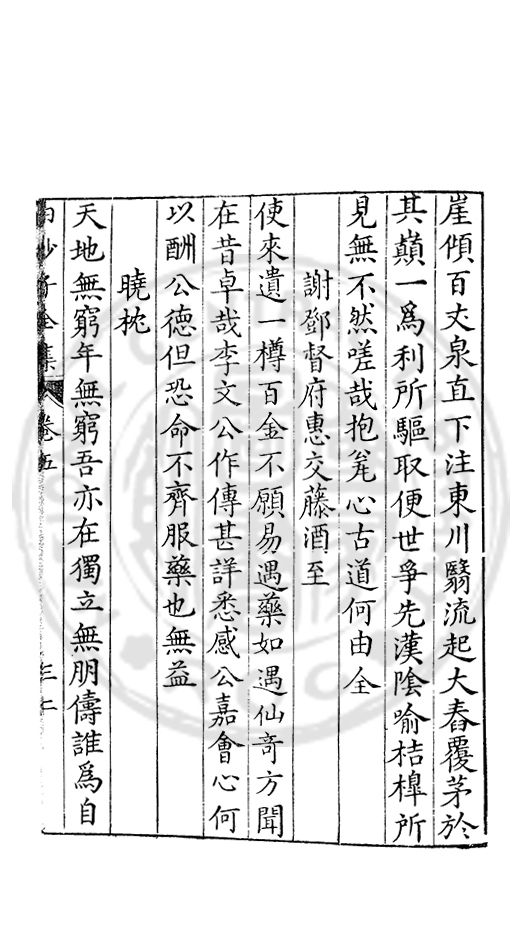 崖傾百丈泉直下注東川翳流起大舂覆茅於
其巔一爲利所驅取便世爭先漢陰喻桔橰所
見無不然嗟哉抱瓮心古道何由全
謝鄧督府惠交藤酒至
使來遺一樽百金不願易遇藥如遇仙竒方聞
在昔卓哉李文公作傳甚詳悉感公嘉會心何
以酬公德但恐命不齊服藥也無益
曉枕
天地無窮年無窮吾亦在獨立無朋儔誰爲自
白沙子全集 卷五